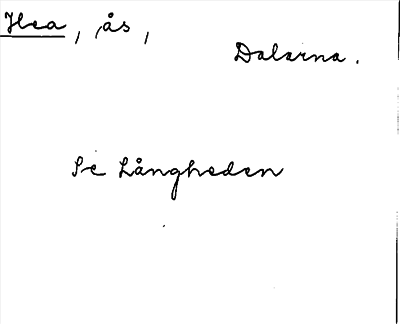 Hea, ås,
Dalarna.
Se Långheden